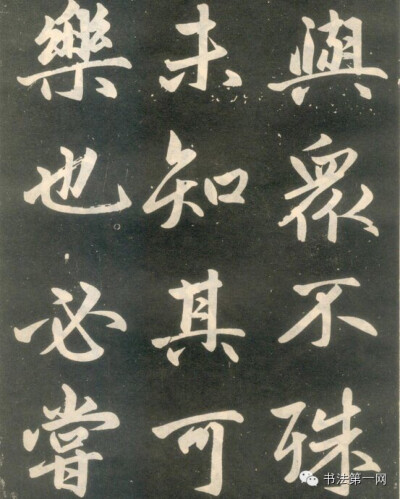 與眾不殊
未知其可
樂也必嘗
书法第一网